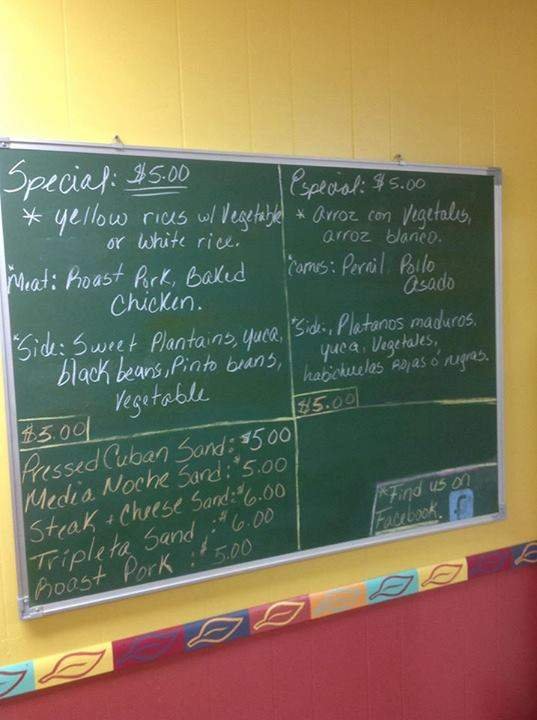 Special: $5.00
* yellow rices w/ Vegetable
or white rice.
*Meat: Roast Pork, Baked
Chicken.
*Side: Sweet Plantains, yuca,
black beans, Pinto beans,
Vegetable
$5.00
Pressed Cuban Sand: $5.00
Media Noche Sand: $5.00
Steak + Cheese Sand: $6.00
Tripleta Sand : $6.00
Roast Pork : $5.00
Especial: $5.00
* arroz con Vegetales,
arroz blanco.
*Carnes: Pernil, Pollo
Asado
*Side:, Platanos maduros,
yuca, Vegetales,
habichuelas Rojas ó negras.
$5.00
*Find us on
Facebook. f